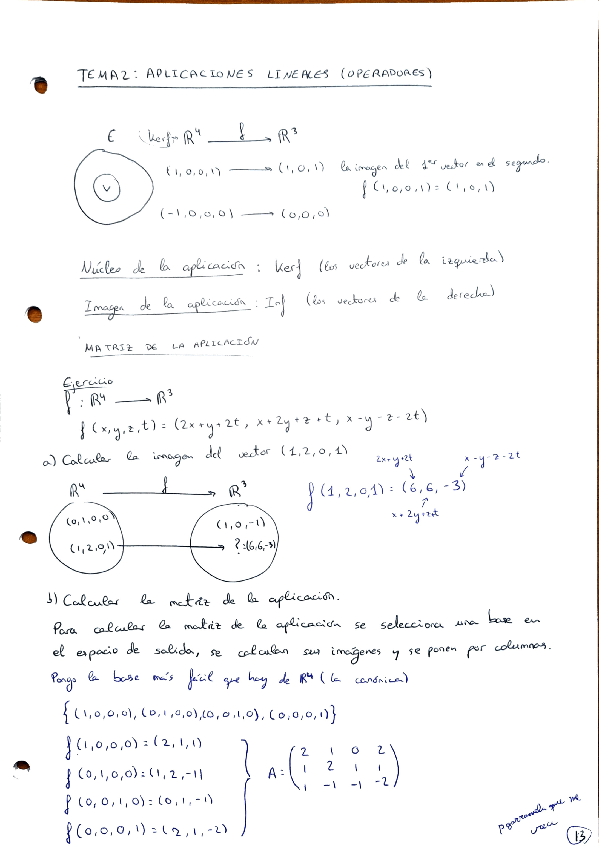 TEMA 2: APLICACIONES LINEALES (OPERADORES)
E Kerf= R⁴ f → R³
V
(1,0,0,1) → (1,0,1) la imagen del 1er vector es el segundo.
f(1,0,0,1)=(1,0,1)
(-1,0,0,0) → (0,0,0)
Núcleo de la aplicación : Kerf (los vectores de la izquierda)
Imagen de la aplicación : Imf (los vectores de la derecha)
MATRIZ DE LA APLICACIÓN
Ejercicio
f : R⁴ → R³
f(x,y,z,t)=(2x+y+2t, x+2y+z+t, x-y-z-2t)
a) Calcular la imagen del vector (1,2,0,1)
2x+y+2t x-y-z-2t
R⁴ f → R³
f(1,2,0,1)=(6,6,-3)
x+2y+z+t
(0,1,0,0) (1,0,-1)
(1,2,0,1) → ?:(6,6,-3)
b) Calcular la matriz de la aplicación.
Para calcular la matriz de la aplicación se selecciona una base en
el espacio de salida, se calculan sus imágenes y se ponen por columnas.
Pongo la base más fácil que hay de R⁴ (la canónica)
{(1,0,0,0), (0,1,0,0),(0,0,1,0), (0,0,0,1)}
f(1,0,0,0)=(2,1,1)
f(0,1,0,0)=(1,2,-1)
f(0,0,1,0)=(0,1,-1)
f(0,0,0,1)=(2,1,-2)
A=
2 1 0 2
1 2 1 1
1 -1 -1 -2
que me
13